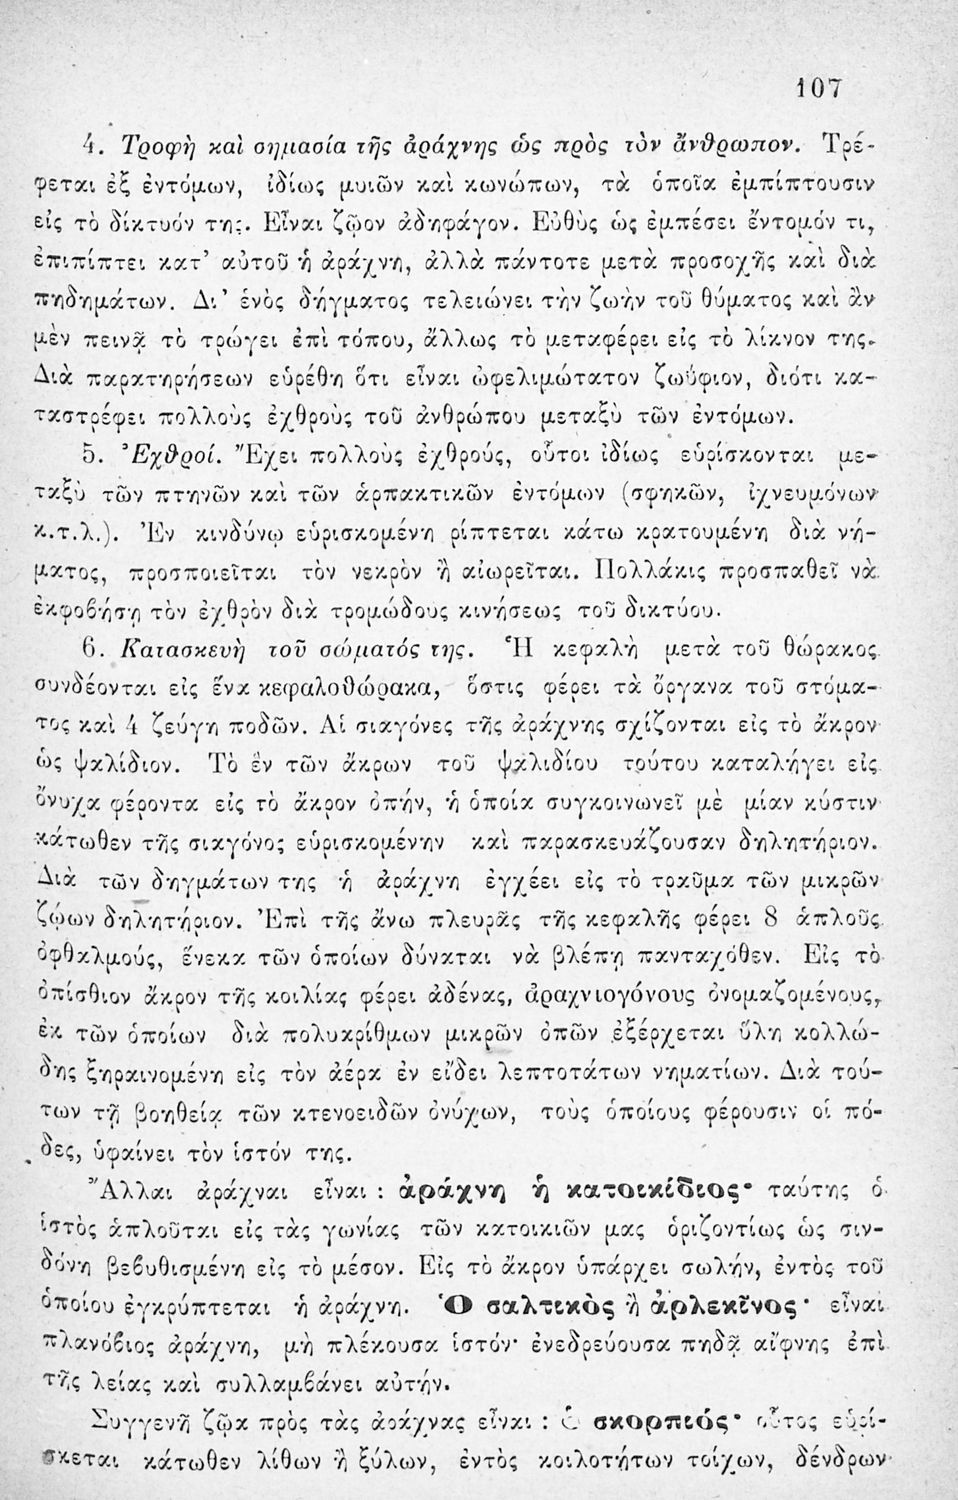 107
4. Τροφὴ καὶ σημασία τῆς ἀράχνης ὡς πρὸς τὸν ἄνθρωπον. Τρέ-
φεται ἐξ ἐντόμων, ἰδίως μυιῶν καὶ κωνώπων, τὰ ὁποῖα ἐμπίπτουσιν
εἰς τὸ δίκτυόν της. Εἶναι ζῷον ἀδηφάγον. Εὐθὺς ὡς ἐμπέσει ἔντομόν τι,
ἐπιπίπτει κατ’ αὐτοῦ ἡ ἀράχνη, ἀλλὰ πάντοτε μετὰ προσοχῆς καὶ διὰ
πηδημάτων. Δι’ ἑνὸς δήγματος τελειώνει τὴν ζωὴν τοῦ θύματος καὶ ἂν
μὲν πεινᾷ τὸ τρώγει ἐπὶ τόπου, ἄλλως τὸ μεταφέρει εἰς τὸ λίκνον της.
Διὰ παρατηρήσεων εὑρέθη ὅτι εἶναι ὠφελιμώτατον ζωΰφιον, διότι κα-
ταστρέφει πολλοὺς ἐχθροὺς τοῦ ἀνθρώπου μεταξὺ τῶν ἐντόμων.
5. Ἐχθροί. Ἔχει πολλοὺς ἐχθρούς, οὗτοι ἰδίως εὑρίσκονται με-
ταξὺ τῶν πτηνῶν καὶ τῶν ἁρπακτικῶν ἐντόμων (σφηκῶν, ἰχνευμόνων
κ.τ.λ.). Ἐν κινδύνῳ εὑρισκομένη ρίπτεται κάτω κρατουμένη διὰ νή-
ματος, προσποιεῖται τὸν νεκρὸν ἢ αἰωρεῖται. Πολλάκις προσπαθεῖ νὰ
ἐκφοβήσῃ τὸν ἐχθρὸν διὰ τρομώδους κινήσεως τοῦ δικτύου.
6. Κατασκευὴ τοῦ σώματός της. Ἡ κεφαλὴ μετὰ τοῦ θώρακος
συνδέονται εἰς ἕνα κεφαλοθώρακα, ὅστις φέρει τὰ ὄργανα τοῦ στόμα-
τος καὶ 4 ζεύγη ποδῶν. Αἱ σιαγόνες τῆς ἀράχνης σχίζονται εἰς τὸ ἄκρον
ὡς ψαλίδιον. Τὸ ἓν τῶν ἄκρων τοῦ ψαλιδίου τούτου καταλήγει εἰς
ὄνυχα φέροντα εἰς τὸ ἄκρον ὀπήν, ἡ ὁποία συγκοινωνεῖ μὲ μίαν κύστιν
κάτωθεν τῆς σιαγόνος εὑρισκομένην καὶ παρασκευάζουσαν δηλητήριον.
Διὰ τῶν δηγμάτων της ἡ ἀράχνη ἐγχέει εἰς τὸ τραῦμα τῶν μικρῶν
ζῴων δηλητήριον. Ἐπὶ τῆς ἄνω πλευρᾶς τῆς κεφαλῆς φέρει 8 ἁπλοῦς
ὀφθαλμούς, ἕνεκα τῶν ὁποίων δύναται νὰ βλέπῃ πανταχόθεν. Εἰς τὸ
ὀπίσθιον ἄκρον τῆς κοιλίας φέρει ἀδένας, ἀραχνιογόνους ὀνομαζομένους,
ἐκ τῶν ὁποίων διὰ πολυαρίθμων μικρῶν ὀπῶν ἐξέρχεται ὕλη κολλώ-
δης ξηραινομένη εἰς τὸν ἀέρα ἐν εἴδει λεπτοτάτων νηματίων. Διὰ τού-
των τῇ βοηθείᾳ τῶν κτενοειδῶν ὀνύχων, τοὺς ὁποίους φέρουσιν οἱ πό-
δες, ὑφαίνει τὸν ἱστόν της.
Ἄλλαι ἀράχναι εἶναι : ἀράχνη ἡ κατοικίδιος· ταύτης ὁ
ἱστὸς ἁπλοῦται εἰς τὰς γωνίας τῶν κατοικιῶν μας ὁριζοντίως ὡς σιν-
δόνη βεβυθισμένη εἰς τὸ μέσον. Εἰς τὸ ἄκρον ὑπάρχει σωλήν, ἐντὸς τοῦ
ὁποίου ἐγκρύπτεται ἡ ἀράχνη. Ὁ σαλτικὸς ἢ ἀρλεκῖνος· εἶναι
πλανόβιος ἀράχνη, μὴ πλέκουσα ἱστόν· ἐνεδρεύουσα πηδᾷ αἴφνης ἐπὶ
τῆς λείας καὶ συλλαμβάνει αὐτήν.
Συγγενῆ ζῷα πρὸς τὰς ἀράχνας εἶναι : ὁ σκορπιός· οὗτος εὑρί-
σκεται κάτωθεν λίθων ἢ ξύλων, ἐντὸς κοιλοτήτων τοίχων, δένδρων